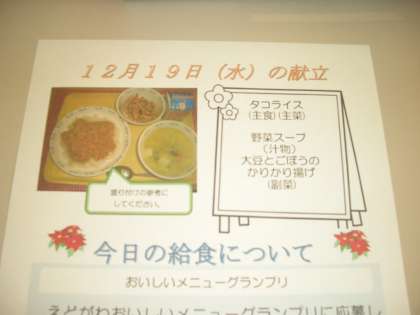 12月19日（水）の献立
タコライス
（主食）（主菜）
野菜スープ
（汁物）
大豆とごぼうの
かりかり揚げ
（副菜）
盛り付けの参考に
してください。
今日の給食について
おいしいメニューグランプリ
えどがわおいしいメニューグランプリに応募し